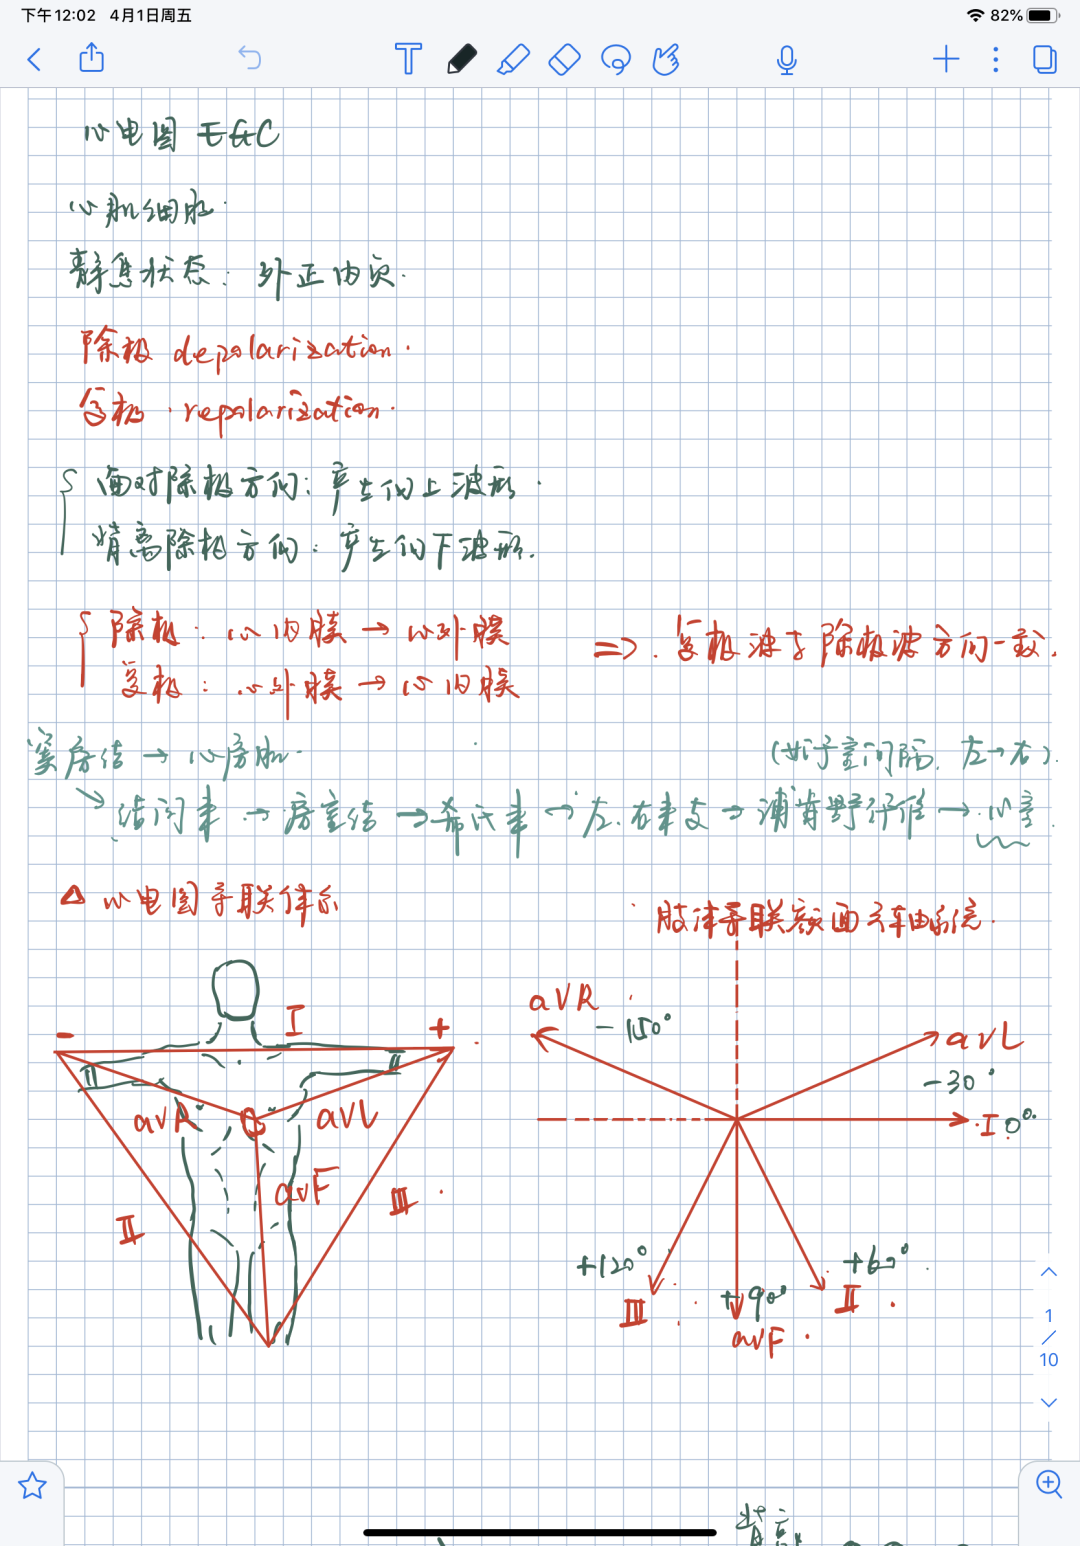 下午12:02 4月1日周五
82%
心电图 ECG
心肌细胞
静息状态：外正内负.
除极 depolarization.
复极 . repolarization.
面对除极方向：产生向上波形.
背离除极方向：产生向下波形.
除极：心内膜 → 心外膜
复极：心外膜 → 心内膜
=> . 复极波与除极波方向一致.
窦房结 → 心房肌
(始于室间隔. 左→右).
结间束 → 房室结 → 希氏束 → 左.右束支 → 浦肯野纤维 → 心室
△ 心电图导联体系
肢体导联额面六轴系统.
I
- +
aVR aVL
aVF
II III
aVR
-150°
aVL
-30°
I 0°
+120°
III
+90°
aVF
+60°
II
1
/
10
背离